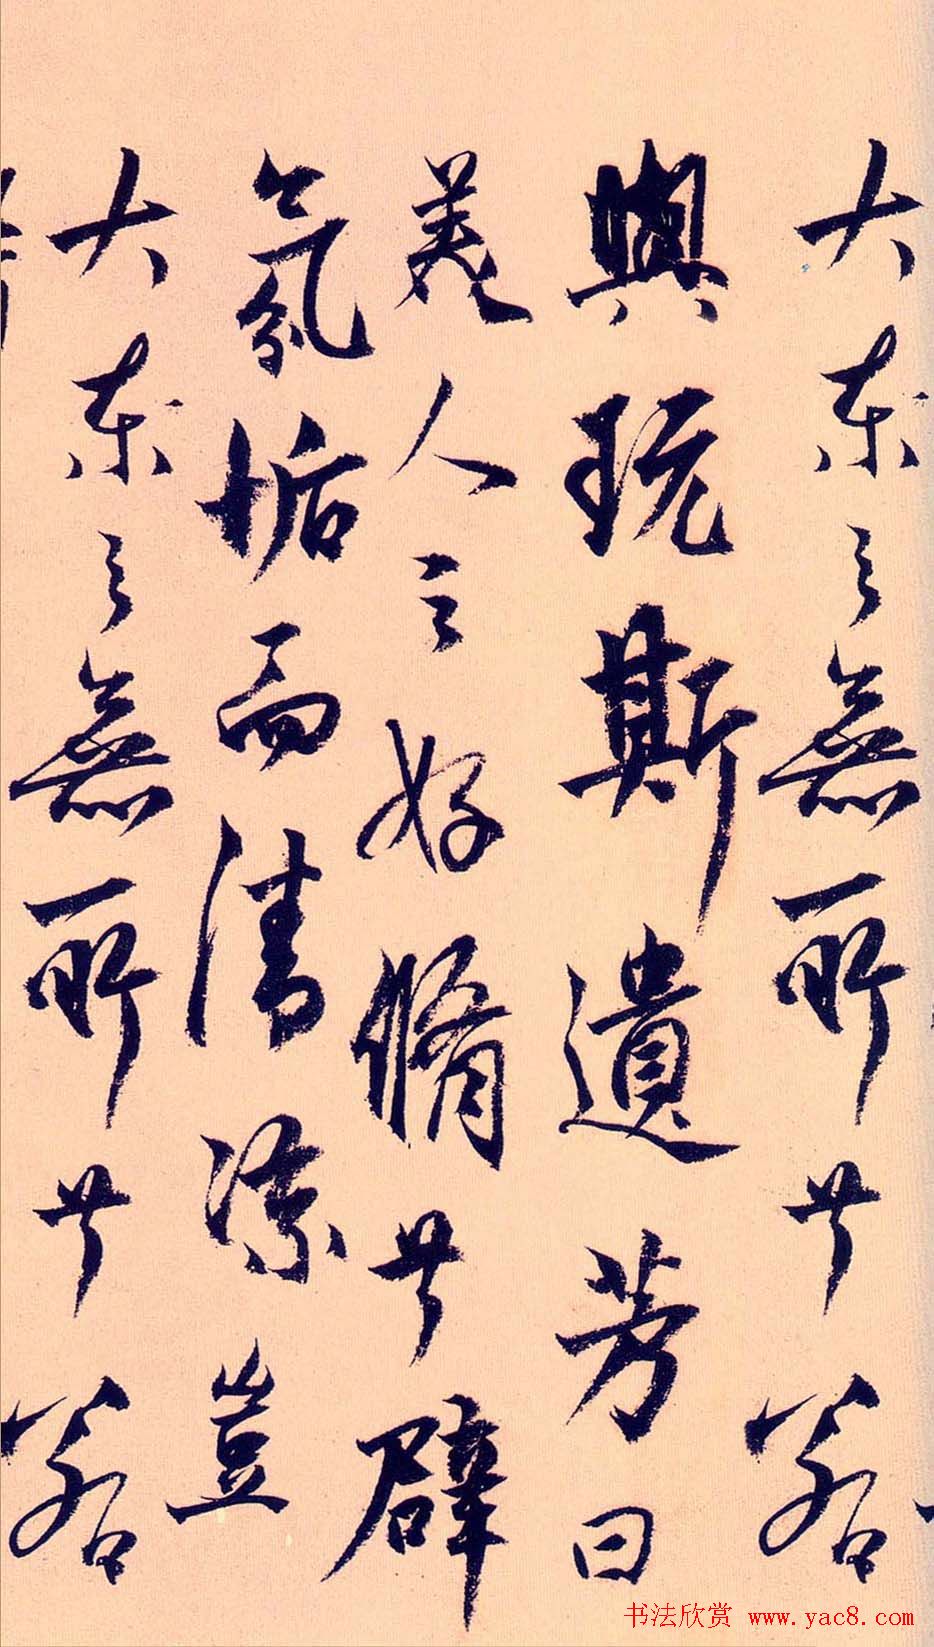 大東之無所兮若
與玩斯遺芳曰
美人之好脩兮辟
氛垢而清涼豈
大東之無所兮若
书法欣赏 www.yac8.com